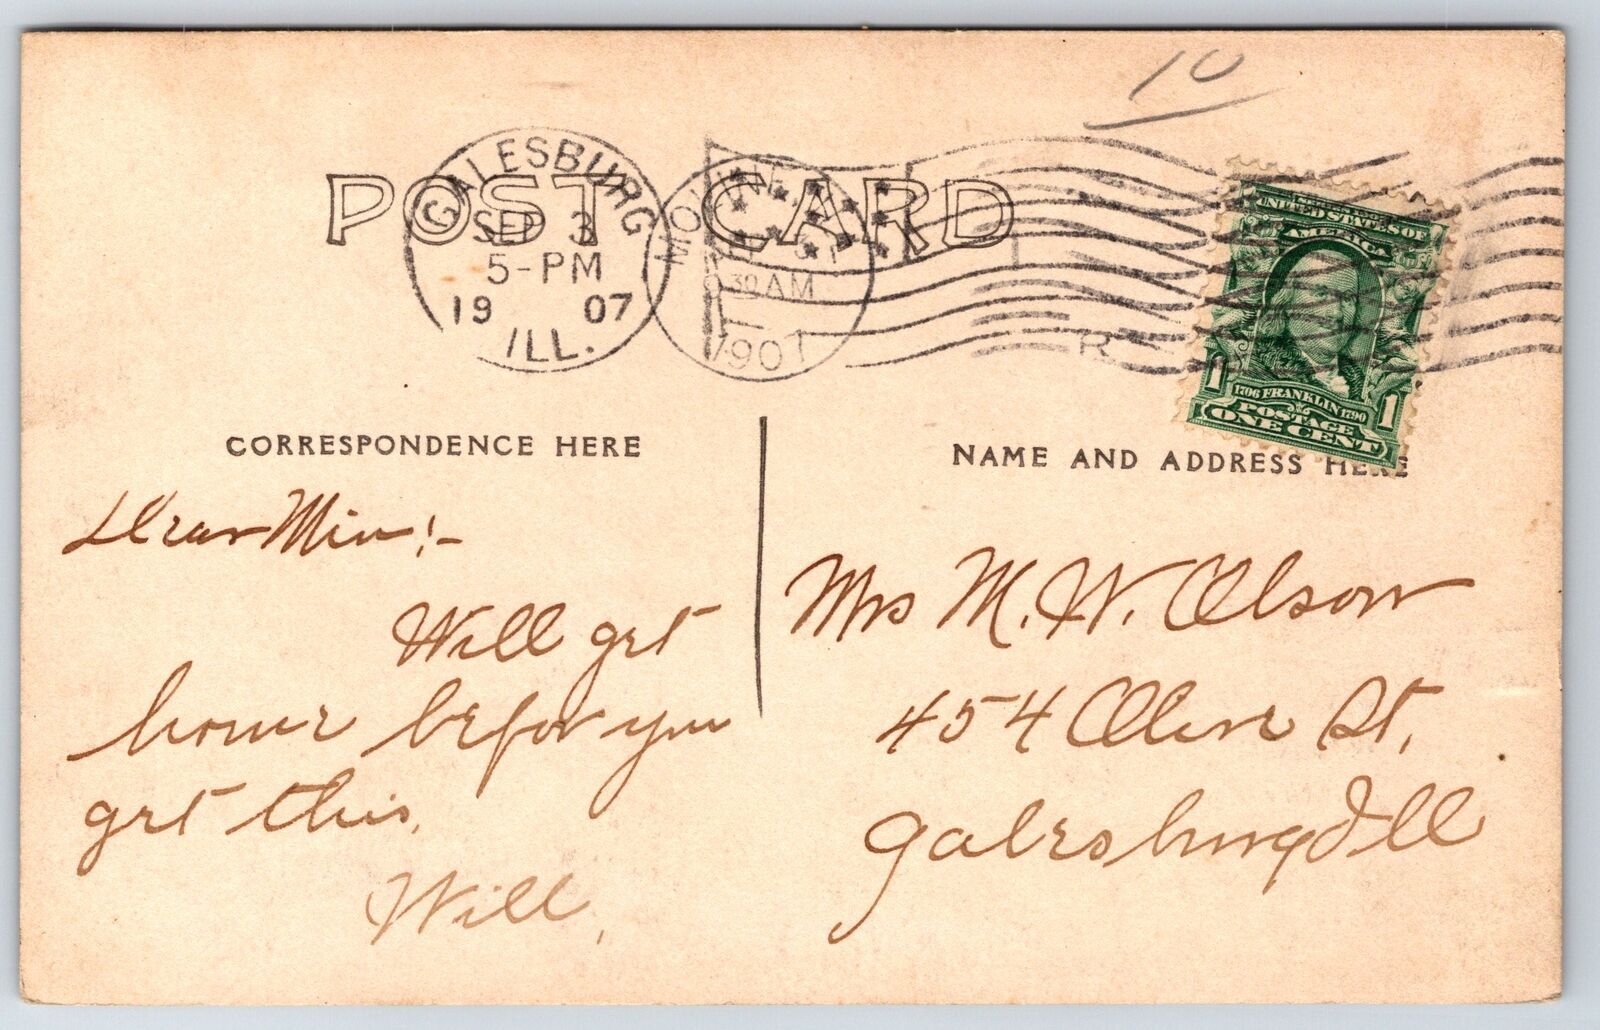 10
POST CARD
GALESBURG
SEP 3
5-PM
1907
ILL.
MOLINE
30 AM
1907
R
UNITED STATES OF
AMERICA
1706 FRANKLIN 1790
1 1
POSTAGE
ONE CENT
CORRESPONDENCE HERE
NAME AND ADDRESS HERE
Dear Min:-
Will get
home befor you
get this.
Will,
Mrs M. W. Olson
454 Olive St,
Galesburg Ill